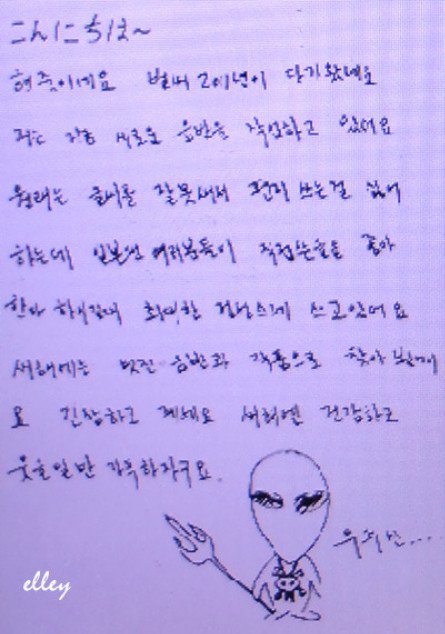 こんにちは~
현중이예요 벌써 2011년이 다가왔네요
저는 지금 새로운 음반을 작업하고 있어요
원래는 글씨를 잘못써서 편지 쓰는걸 싫어
하는데 일본팬 여러분들이 직접쓴글을 좋아
한다 하시길래 최대한 쓰고있어요
새해에는 멋진 음반과 작품으로 찾아 뵐께
요 긴장하고 계세요 새해엔 건강하고
웃을일만 가득하자구요.
우주신...
elley